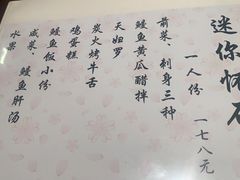 迷你怀石
一人份
一七八元
前菜、刺身三种
鳗鱼黄瓜醋拌
天妇罗
炭火烤牛舌
鸡蛋糕
鳗鱼饭小份
咸菜、鳗鱼肝汤
水果